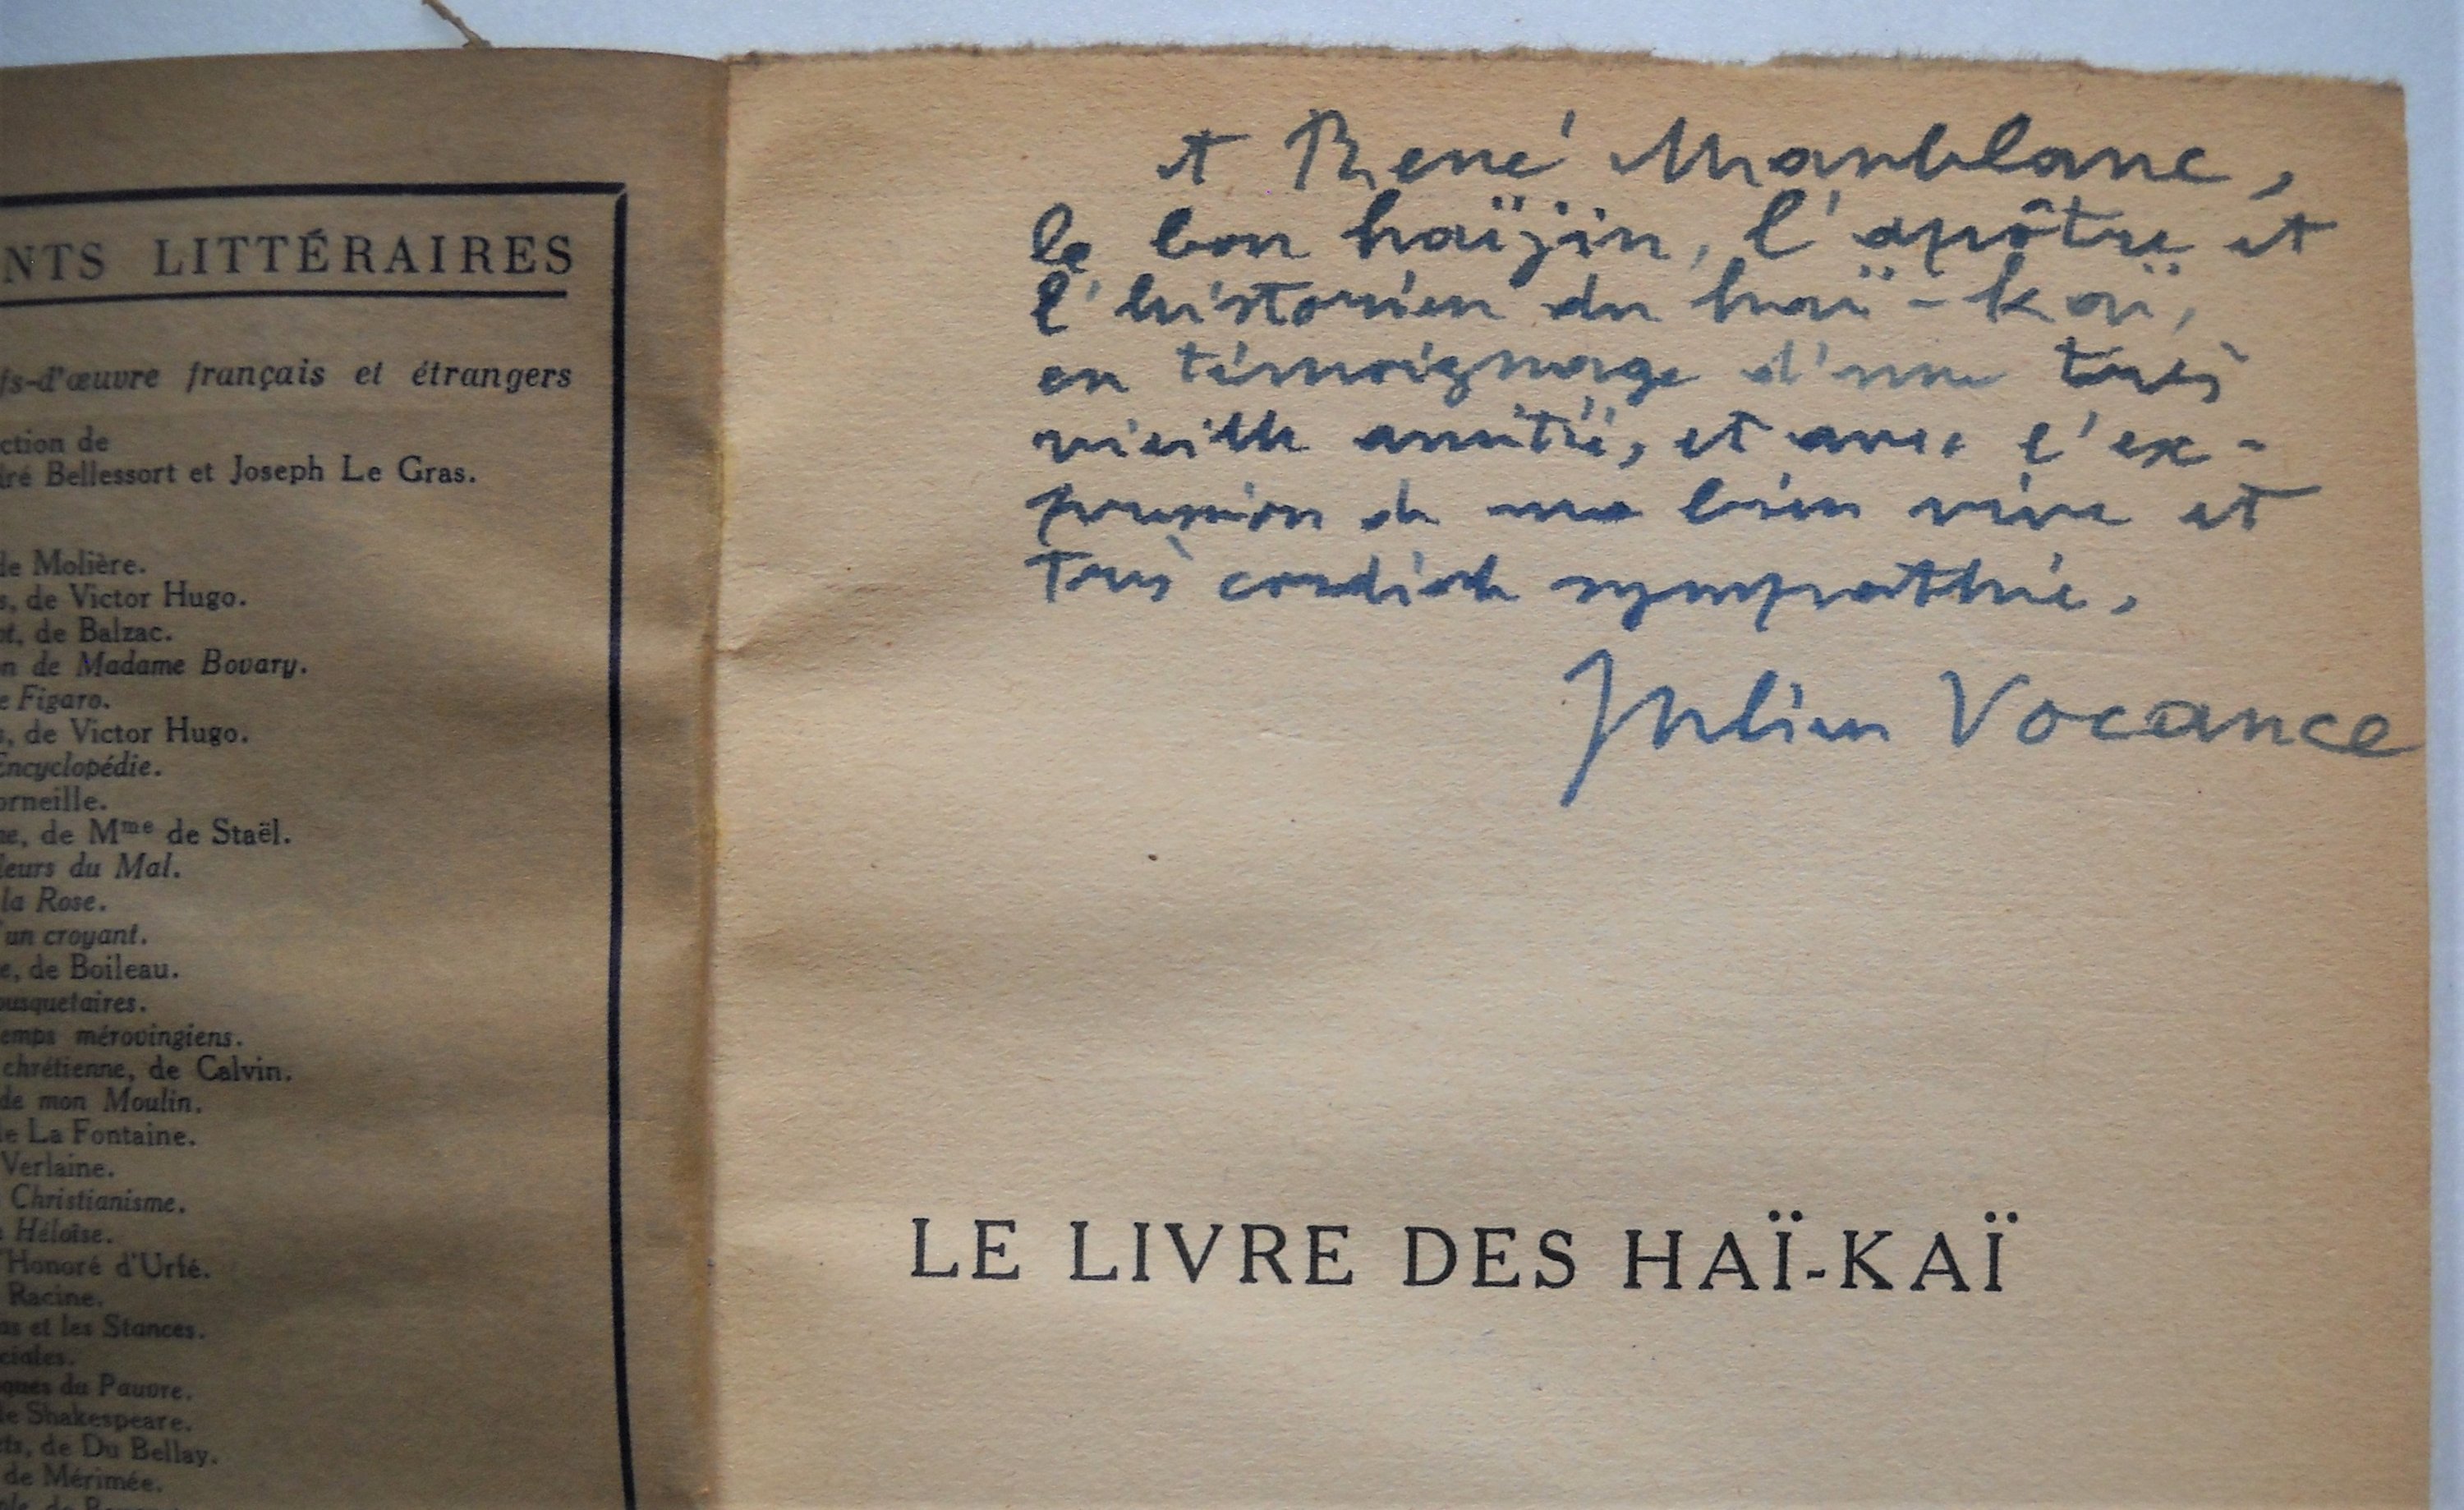 NTS LITTÉRAIRES
fs-d'œuvre français et étrangers
ction de
dré Bellessort et Joseph Le Gras.
de Molière.
s, de Victor Hugo.
ot, de Balzac.
on de Madame Bovary.
e Figaro.
s, de Victor Hugo.
Encyclopédie.
orneille.
ne, de Mme de Staël.
leurs du Mal.
la Rose.
'un croyant.
e, de Boileau.
ousquetaires.
emps mérovingiens.
chrétienne, de Calvin.
de mon Moulin.
de La Fontaine.
Verlaine.
Christianisme.
Héloïse.
'Honoré d'Urfé.
Racine.
as et les Stances.
ciales.
ques du Pauvre.
de Shakespeare.
ets, de Du Bellay.
de Mérimée.
A René Maublanc,
le bon haïjin, l'apôtre et
l'historien du haï-kaï,
en témoignage d'une très
vieille amitié, et avec l'ex-
pression de ma bien vive et
très cordiale sympathie.
Julien Vocance
LE LIVRE DES HAÏ-KAÏ